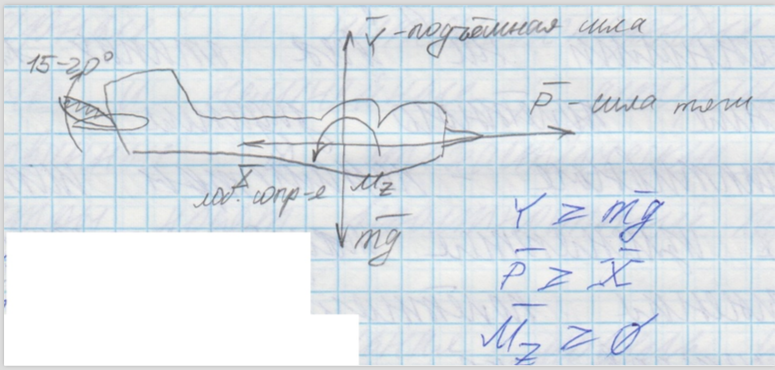 Y̅ - подъёмная сила
15-20°
P̅ - сила тяги
X̅
лоб. сопр-е
Mz
m̅g̅
Y ≥ m̅g̅
P̅ ≥ X̅
M̅z ≥ 0